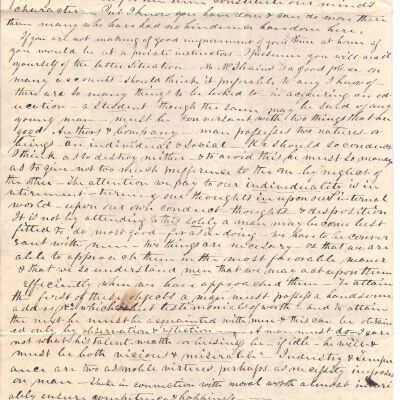 constitute our mind &
character — But I know you have done & can do more there
than many who have had no hindrances have done here,
If you are not making of good improvement of your time at home if
you would be at a private instructor I presume you will avail
yourself of the latter situation — M. McShaird is a good place on
many accounts should think it preferable to any I know of
there are so many things to be looked to in acquiring an ed
ucation — a student though the same may be said of any
young man — must be conversant with two things that are
good Authors & Company — man possesses two natures or
things an individual & social — He should so conduct
I think as to destroy neither — & to avoid this he must so manage
as to give not too much preference to the one by neglect of
the other — The attention we pay to our individuality is in
retirement — turning our thoughts in upon our internal
world — upon our own conduct — thoughts & disposition
It is not by attending to this solely a man may become best
fitted to do most good — for as in doing — we have to be conver
sant with men — two things are necessary & that we are
able to approach them in the most favorable manner
& that we so understand men that we may act upon them
Efficiently when we have approached them — To attain
the first of these objects a man must possess a handsome
address & intrinsic testimonials of worth & and to attain
the last he must be acquainted with men — & this can be obtain
ed only by observation & reflection — A man must do — I care
not what his talent wealth or business be — if idle — he will &
must be both vicious & miserable — Industry & temper
ance are two as noble virtues perhaps as necessity imposes
on man — These in connection with moral worth almost invari
ably ensure competence & happiness —